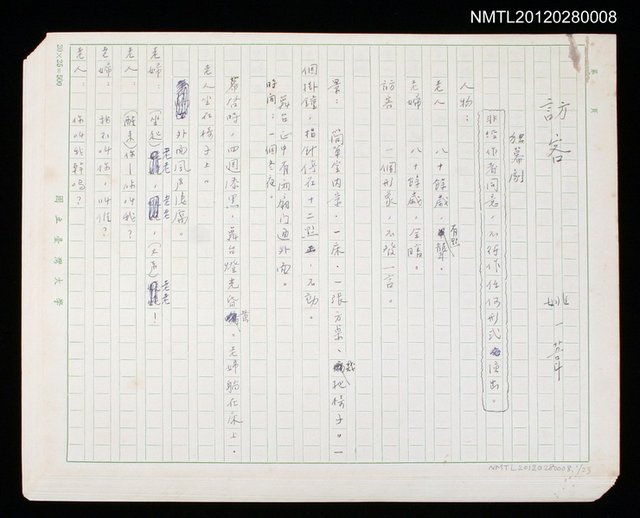 NMTL20120280008
訪客
獨幕劇
姚一葦
非經作者同意，不得作任何形式演出。
人物：
老人　八十餘歲，有點聾。
老婦　八十餘歲，全瞎。
訪客　一個形象，不發一言。
景：簡單室內景，一床、一張方桌、几把椅子。一
個掛鐘，指針停在十二點上，不動。
舞台正中有兩扇門通外面。
時間：一個冬夜。
幕啓時，四週漆黑，舞台燈光昏黃。老婦躺在床上，
老人坐在椅子上。
外面風聲淒厲
老婦：（坐起）老老，老老，（大聲）老老！
老人：（醒來）你——你叫我？
老婦：我不叫你，叫誰？
老人：你叫我幹嗎？
20×25=500
國立臺灣大學
第　頁
NMTL20120280008, 1/23